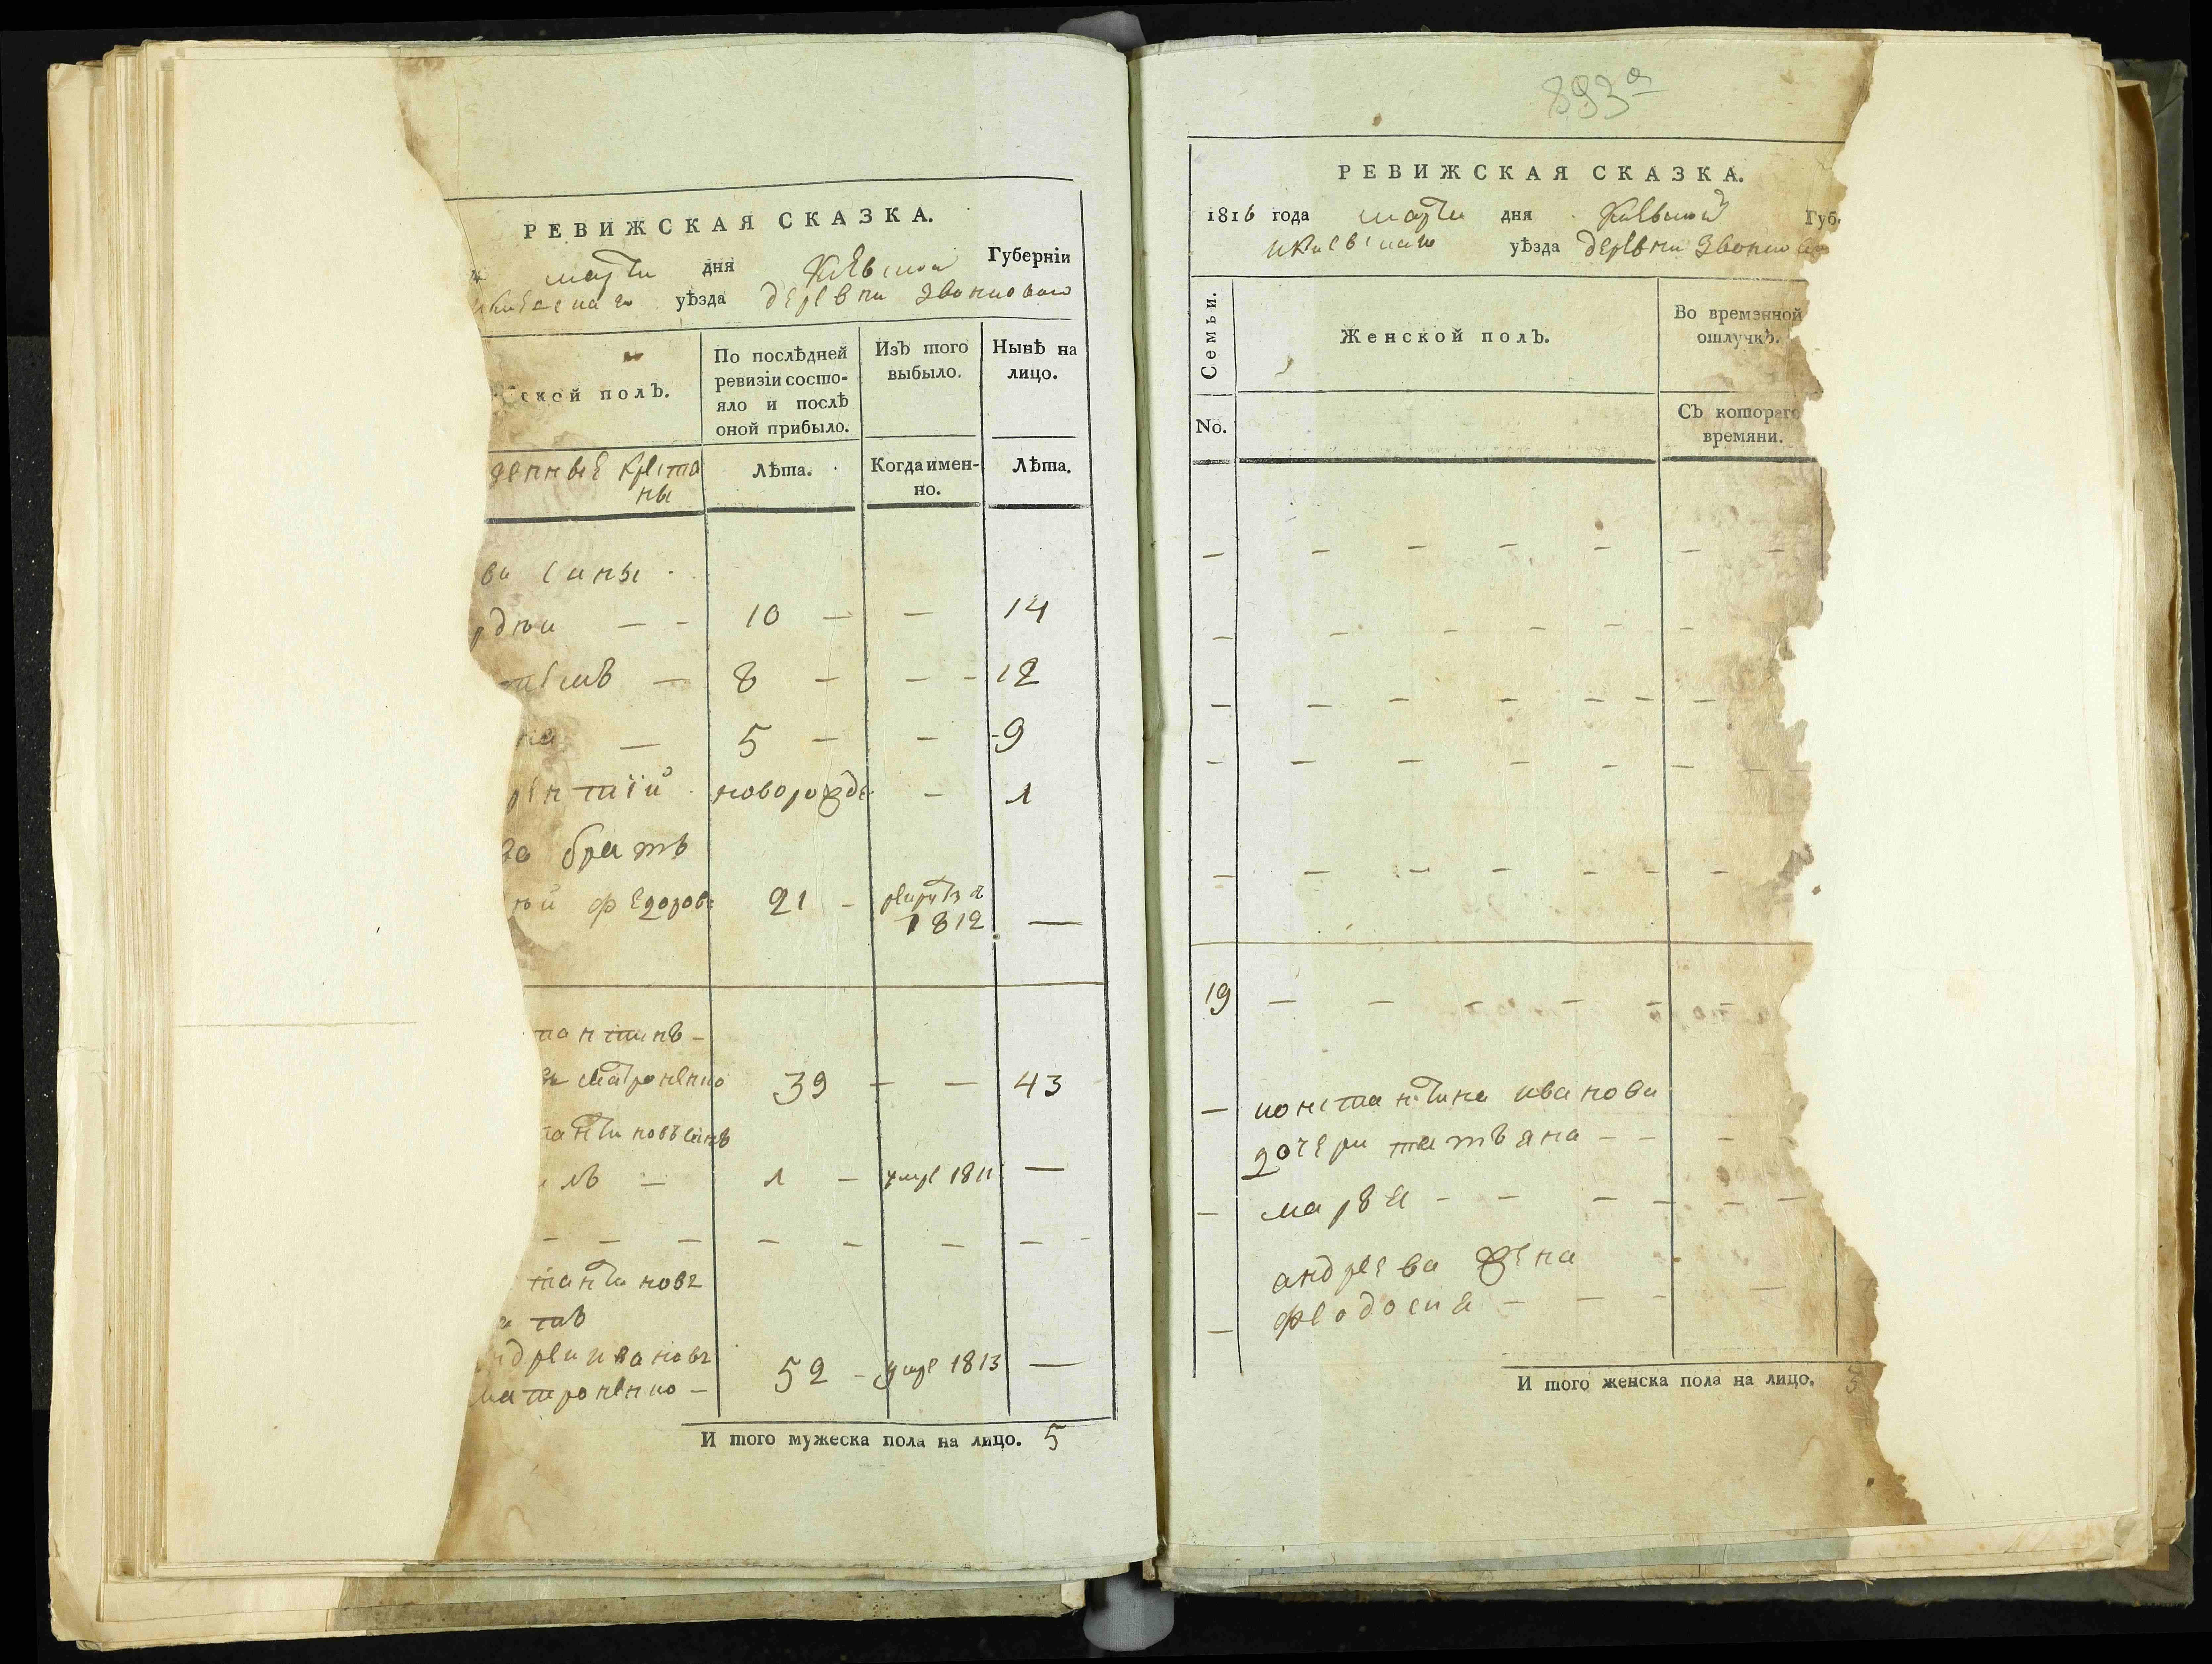 РЕВИЖСКАЯ СКАЗКА.
марта дня Киевской Губерніи
уѣзда деревни Звонковой
ской полЪ.
По послѣдней ревизіи состояло и послѣ оной прибыло.
ИзЪ того выбыло.
Нынѣ на лицо.
Лѣта.
Когда имен-
но.
Лѣта.
ва сины
10 — — 14
8 — — 12
на — 5 — — 9
рентій новорожде — 1
братъ
федоров 21 — 1812 —
тантинъ —
Матроненко 39 — — 43
лъ — 1 — умре 1811 —
тантиновъ
ндреи ивановъ
матроненко — 52 — умре 1813 —
И того мужеска пола на лицо. 5
893а
РЕВИЖСКАЯ СКАЗКА.
1816 года марта дня Киевской Губ
икиевскаго уѣзда деревни Звонков
Семьи.
Женской полЪ.
Во временной
отлучкѣ.
No.
СЪ котораго
времяни.
19
константина иванова
дочери татьяна
маря
андреева жена
феодосия
И того женска пола на лицо. 3